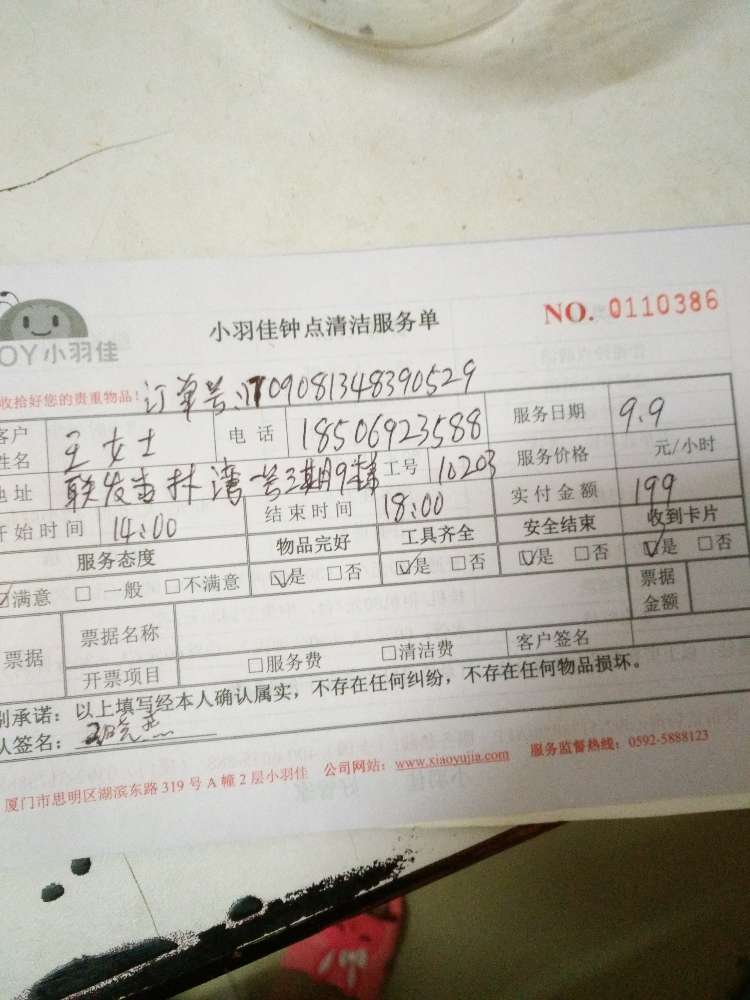 小羽佳钟点清洁服务单
NO. 0110386
OY小羽佳
收拾好您的贵重物品!订单号:1709081348390529
客户姓名 王女士 电话 18506923588 服务日期 9.9
地址 联发杏林湾一号三期9栋 工号 10203 服务价格 元/小时
开始时间 14:00 结束时间 18:00 实付金额 199
服务态度 物品完好 工具齐全 安全结束 收到卡片
☑满意 □ 一般 □不满意 ☑是 □否 ☑是 □否 ☑是 □否 ☑是 □否
票据 票据名称 票据金额
开票项目 □服务费 □清洁费 客户签名
别承诺:以上填写经本人确认属实,不存在任何纠纷,不存在任何物品损坏。
人签名:
厦门市思明区湖滨东路319号A幢2层小羽佳 公司网站:www.xiaoyujia.com 服务监督热线:0592-5888123